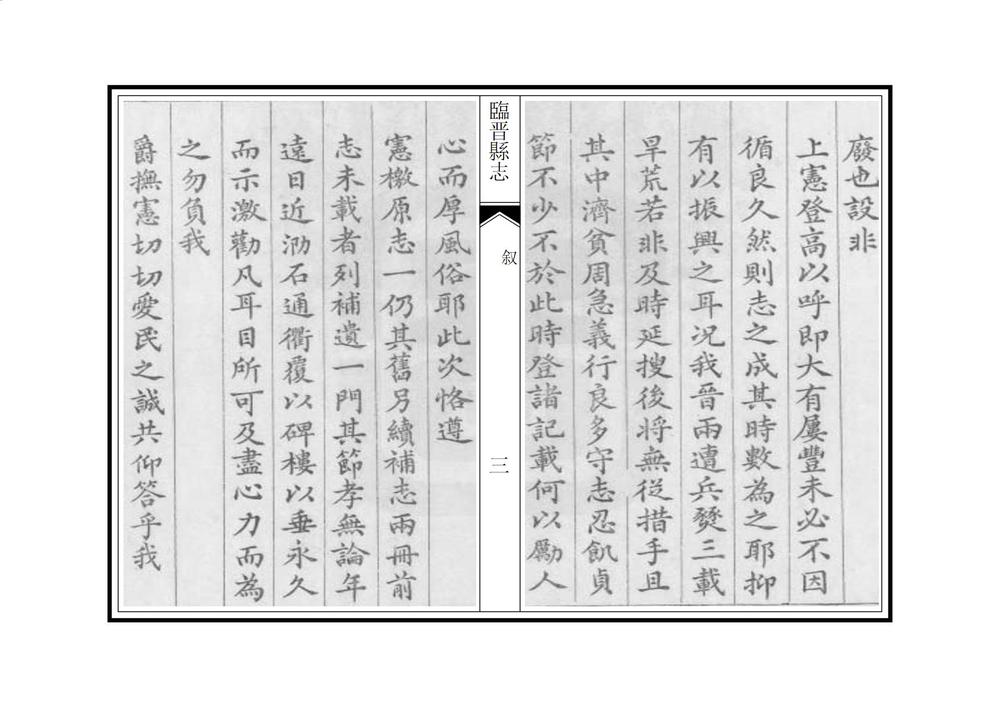 廢也設非
上憲登高以呼即大有屢豐未必不因
循良久然則志之成其時數為之耶抑
有以振興之耳况我晉兩遭兵燹三載
旱荒若非及時延搜後将無從措手且
其中濟貧周急義行良多守志忍飢貞
節不少不於此時登諸記載何以勵人
臨晋縣志
叙
三
心而厚風俗耶此次恪遵
憲檄原志一仍其舊另續補志兩冊前
志未載者列補遺一門其節孝無論年
遠日近泐石通衢覆以碑樓以垂永久
而示激勸凡耳目所可及盡心力而為
之勿負我
爵撫憲切切愛民之誠共仰答乎我